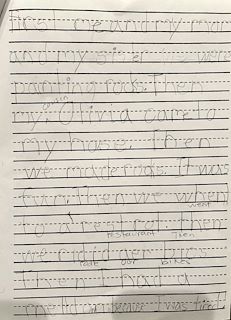 first me and my mom
and my sister us were
painting rocks. Then
my cousin Olivia came to
my house. Then
we made rods. It was
fun. Then we when
went
to a restrat. Then
restaurant Then
we ridid ier biks
rode our bikes
Then I had a
melldam because I was tired